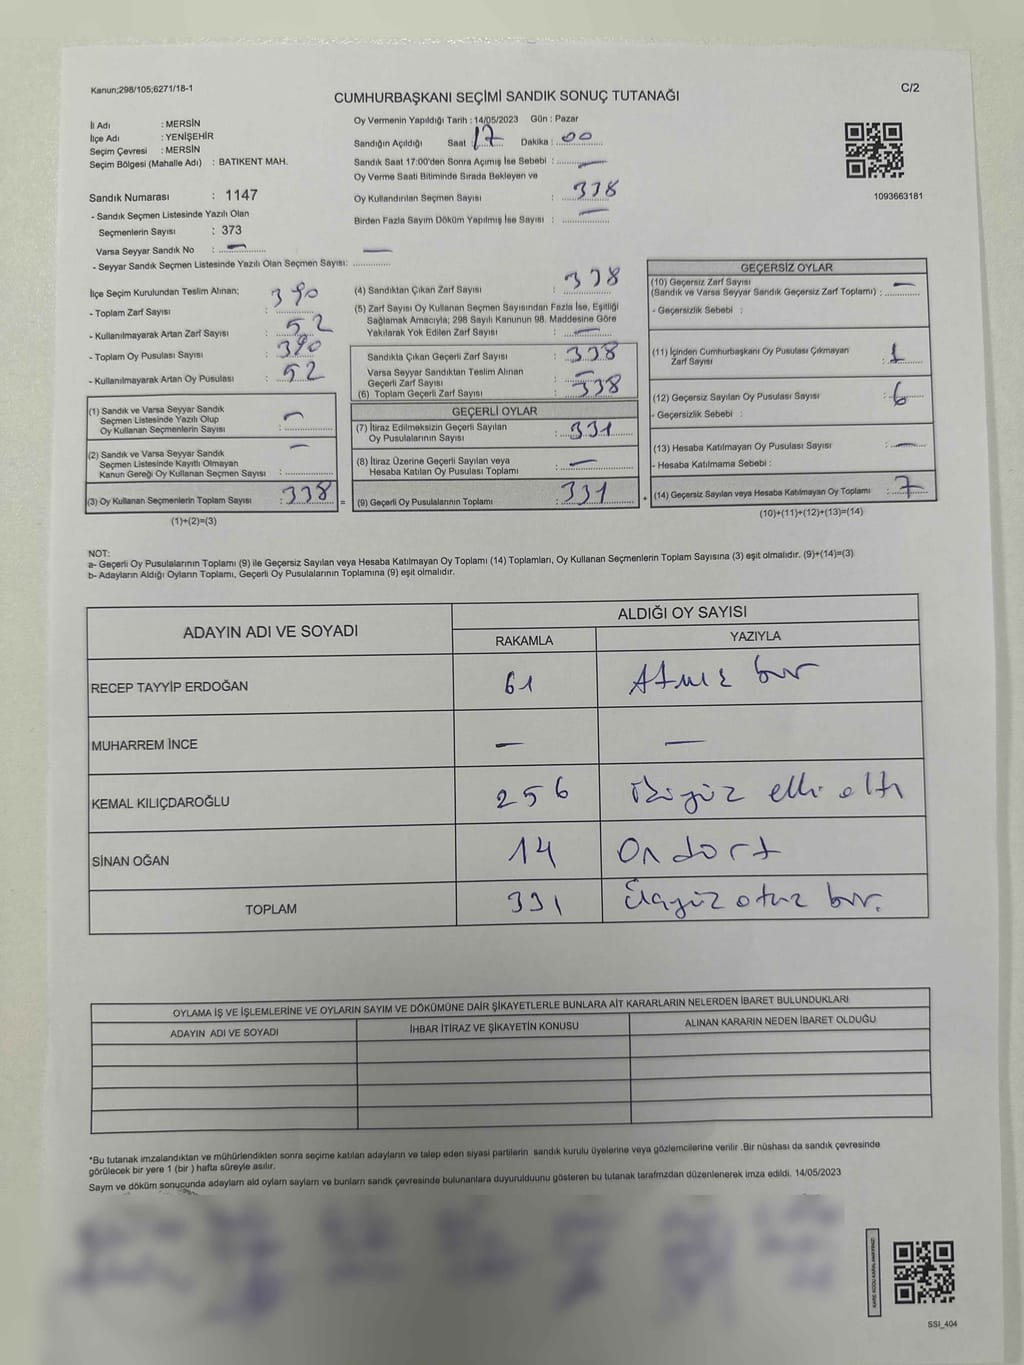 Kanun;298/105;6271/18-1
C/2
CUMHURBAŞKANI SEÇİMİ SANDIK SONUÇ TUTANAĞI
İl Adı : MERSİN
İlçe Adı : YENİŞEHİR
Seçim Çevresi : MERSİN
Seçim Bölgesi (Mahalle Adı) : BATIKENT MAH.
Sandık Numarası : 1147
- Sandık Seçmen Listesinde Yazılı Olan
Seçmenlerin Sayısı : 373
Varsa Seyyar Sandık No : —
- Seyyar Sandık Seçmen Listesinde Yazılı Olan Seçmen Sayısı: —
Oy Vermenin Yapıldığı Tarih : 14/05/2023 Gün : Pazar
Sandığın Açıldığı Saat : 17 Dakika : 00
Sandık Saat 17:00'den Sonra Açımış İse Sebebi : —
Oy Verme Saati Bitiminde Sırada Bekleyen ve
Oy Kullandırılan Seçmen Sayısı : 338
Birden Fazla Sayım Döküm Yapılmış İse Sayısı : —
1093663181
İlçe Seçim Kurulundan Teslim Alınan;
- Toplam Zarf Sayısı : 390
- Kullanılmayarak Artan Zarf Sayısı : 52
- Toplam Oy Pusulası Sayısı : 390
- Kullanılmayarak Artan Oy Pusulası : 52
(1) Sandık ve Varsa Seyyar Sandık
Seçmen Listesinde Yazılı Olup
Oy Kullanan Seçmenlerin Sayısı : —
(2) Sandık ve Varsa Seyyar Sandık
Seçmen Listesinde Kayıtlı Olmayan
Kanun Gereği Oy Kullanan Seçmen Sayısı : —
(3) Oy Kullanan Seçmenlerin Toplam Sayısı : 338 =
(1)+(2)=(3)
(4) Sandıktan Çıkan Zarf Sayısı : 338
(5) Zarf Sayısı Oy Kullanan Seçmen Sayısından Fazla İse, Eşitliği
Sağlamak Amacıyla; 298 Sayılı Kanunun 98. Maddesine Göre
Yakılarak Yok Edilen Zarf Sayısı : —
Sandıkta Çıkan Geçerli Zarf Sayısı : 338
Varsa Seyyar Sandıktan Teslim Alınan
Geçerli Zarf Sayısı : —
(6) Toplam Geçerli Zarf Sayısı : 338
GEÇERLİ OYLAR
(7) İtiraz Edilmeksizin Geçerli Sayılan
Oy Pusulalarının Sayısı : 331
(8) İtiraz Üzerine Geçerli Sayılan veya
Hesaba Katılan Oy Pusulası Toplamı : —
(9) Geçerli Oy Pusulalarının Toplamı : 331 +
GEÇERSİZ OYLAR
(10) Geçersiz Zarf Sayısı
(Sandık ve Varsa Seyyar Sandık Geçersiz Zarf Toplamı) : —
- Geçersizlik Sebebi :
(11) İçinden Cumhurbaşkanı Oy Pusulası Çıkmayan
Zarf Sayısı : 1
(12) Geçersiz Sayılan Oy Pusulası Sayısı : 6
- Geçersizlik Sebebi :
(13) Hesaba Katılmayan Oy Pusulası Sayısı : —
- Hesaba Katılmama Sebebi :
(14) Geçersiz Sayılan veya Hesaba Katılmayan Oy Toplamı : 7
(10)+(11)+(12)+(13)=(14)
NOT:
a- Geçerli Oy Pusulalarının Toplamı (9) ile Geçersiz Sayılan veya Hesaba Katılmayan Oy Toplamı (14) Toplamları, Oy Kullanan Seçmenlerin Toplam Sayısına (3) eşit olmalıdır. (9)+(14)=(3)
b- Adayların Aldığı Oyların Toplamı, Geçerli Oy Pusulalarının Toplamına (9) eşit olmalıdır.
ADAYIN ADI VE SOYADI
ALDIĞI OY SAYISI
RAKAMLA YAZIYLA
RECEP TAYYİP ERDOĞAN 61 Atmış bir
MUHARREM İNCE — —
KEMAL KILIÇDAROĞLU 256 ikiyüz elli altı
SİNAN OĞAN 14 On dört
TOPLAM 331 Üçyüz otuz bir.
OYLAMA İŞ VE İŞLEMLERİNE VE OYLARIN SAYIM VE DÖKÜMÜNE DAİR ŞİKAYETLERLE BUNLARA AİT KARARLARIN NELERDEN İBARET BULUNDUKLARI
ADAYIN ADI VE SOYADI İHBAR İTİRAZ VE ŞİKAYETİN KONUSU ALINAN KARARIN NEDEN İBARET OLDUĞU
*Bu tutanak imzalandıktan ve mühürlendikten sonra seçime katılan adayların ve talep eden siyasi partilerin sandık kurulu üyelerine veya gözlemcilerine verilir .Bir nüshası da sandık çevresinde
görülecek bir yere 1 (bir ) hafta süreyle asılır.
Saym ve döküm sonuçunda adaylarn ald oylarn saylarn ve bunlarn sandk çevresinde bulunanlara duyurulduunu gösteren bu tutanak tarafmzdan düzenlenerek imza edildi. 14/05/2023
SSI_404